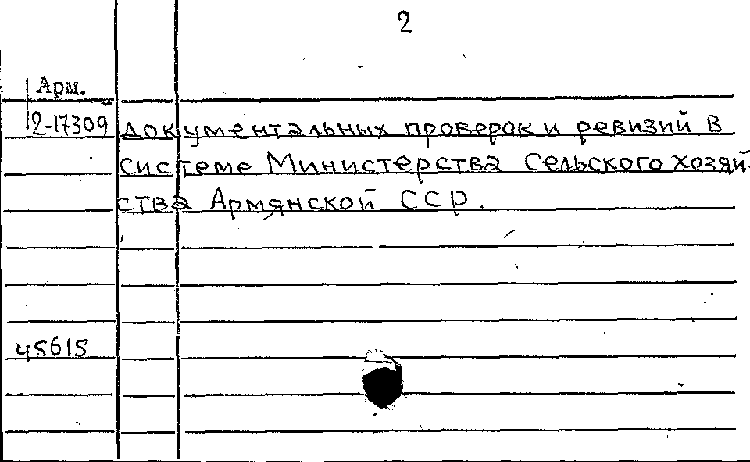 2
Арм.
2-17309 документальных проверок и ревизий в
системе Министерства Сельского хозяй-
ства Армянской ССР.
45615